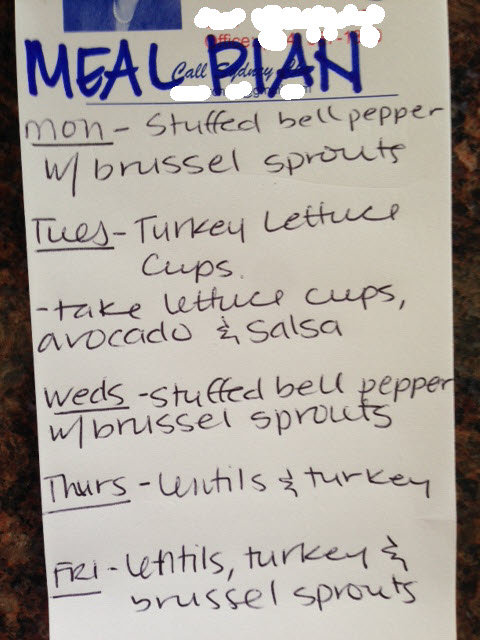 Office
MEAL PLAN
Call Sydney
mon - Stuffed bell pepper
w/ brussel sprouts
Tues - Turkey Lettuce
Cups.
- take lettuce cups,
avocado & salsa
Weds - stuffed bell pepper
w/ brussel sprouts
Thurs - lentils & turkey
FRI - lentils, turkey &
brussel sprouts